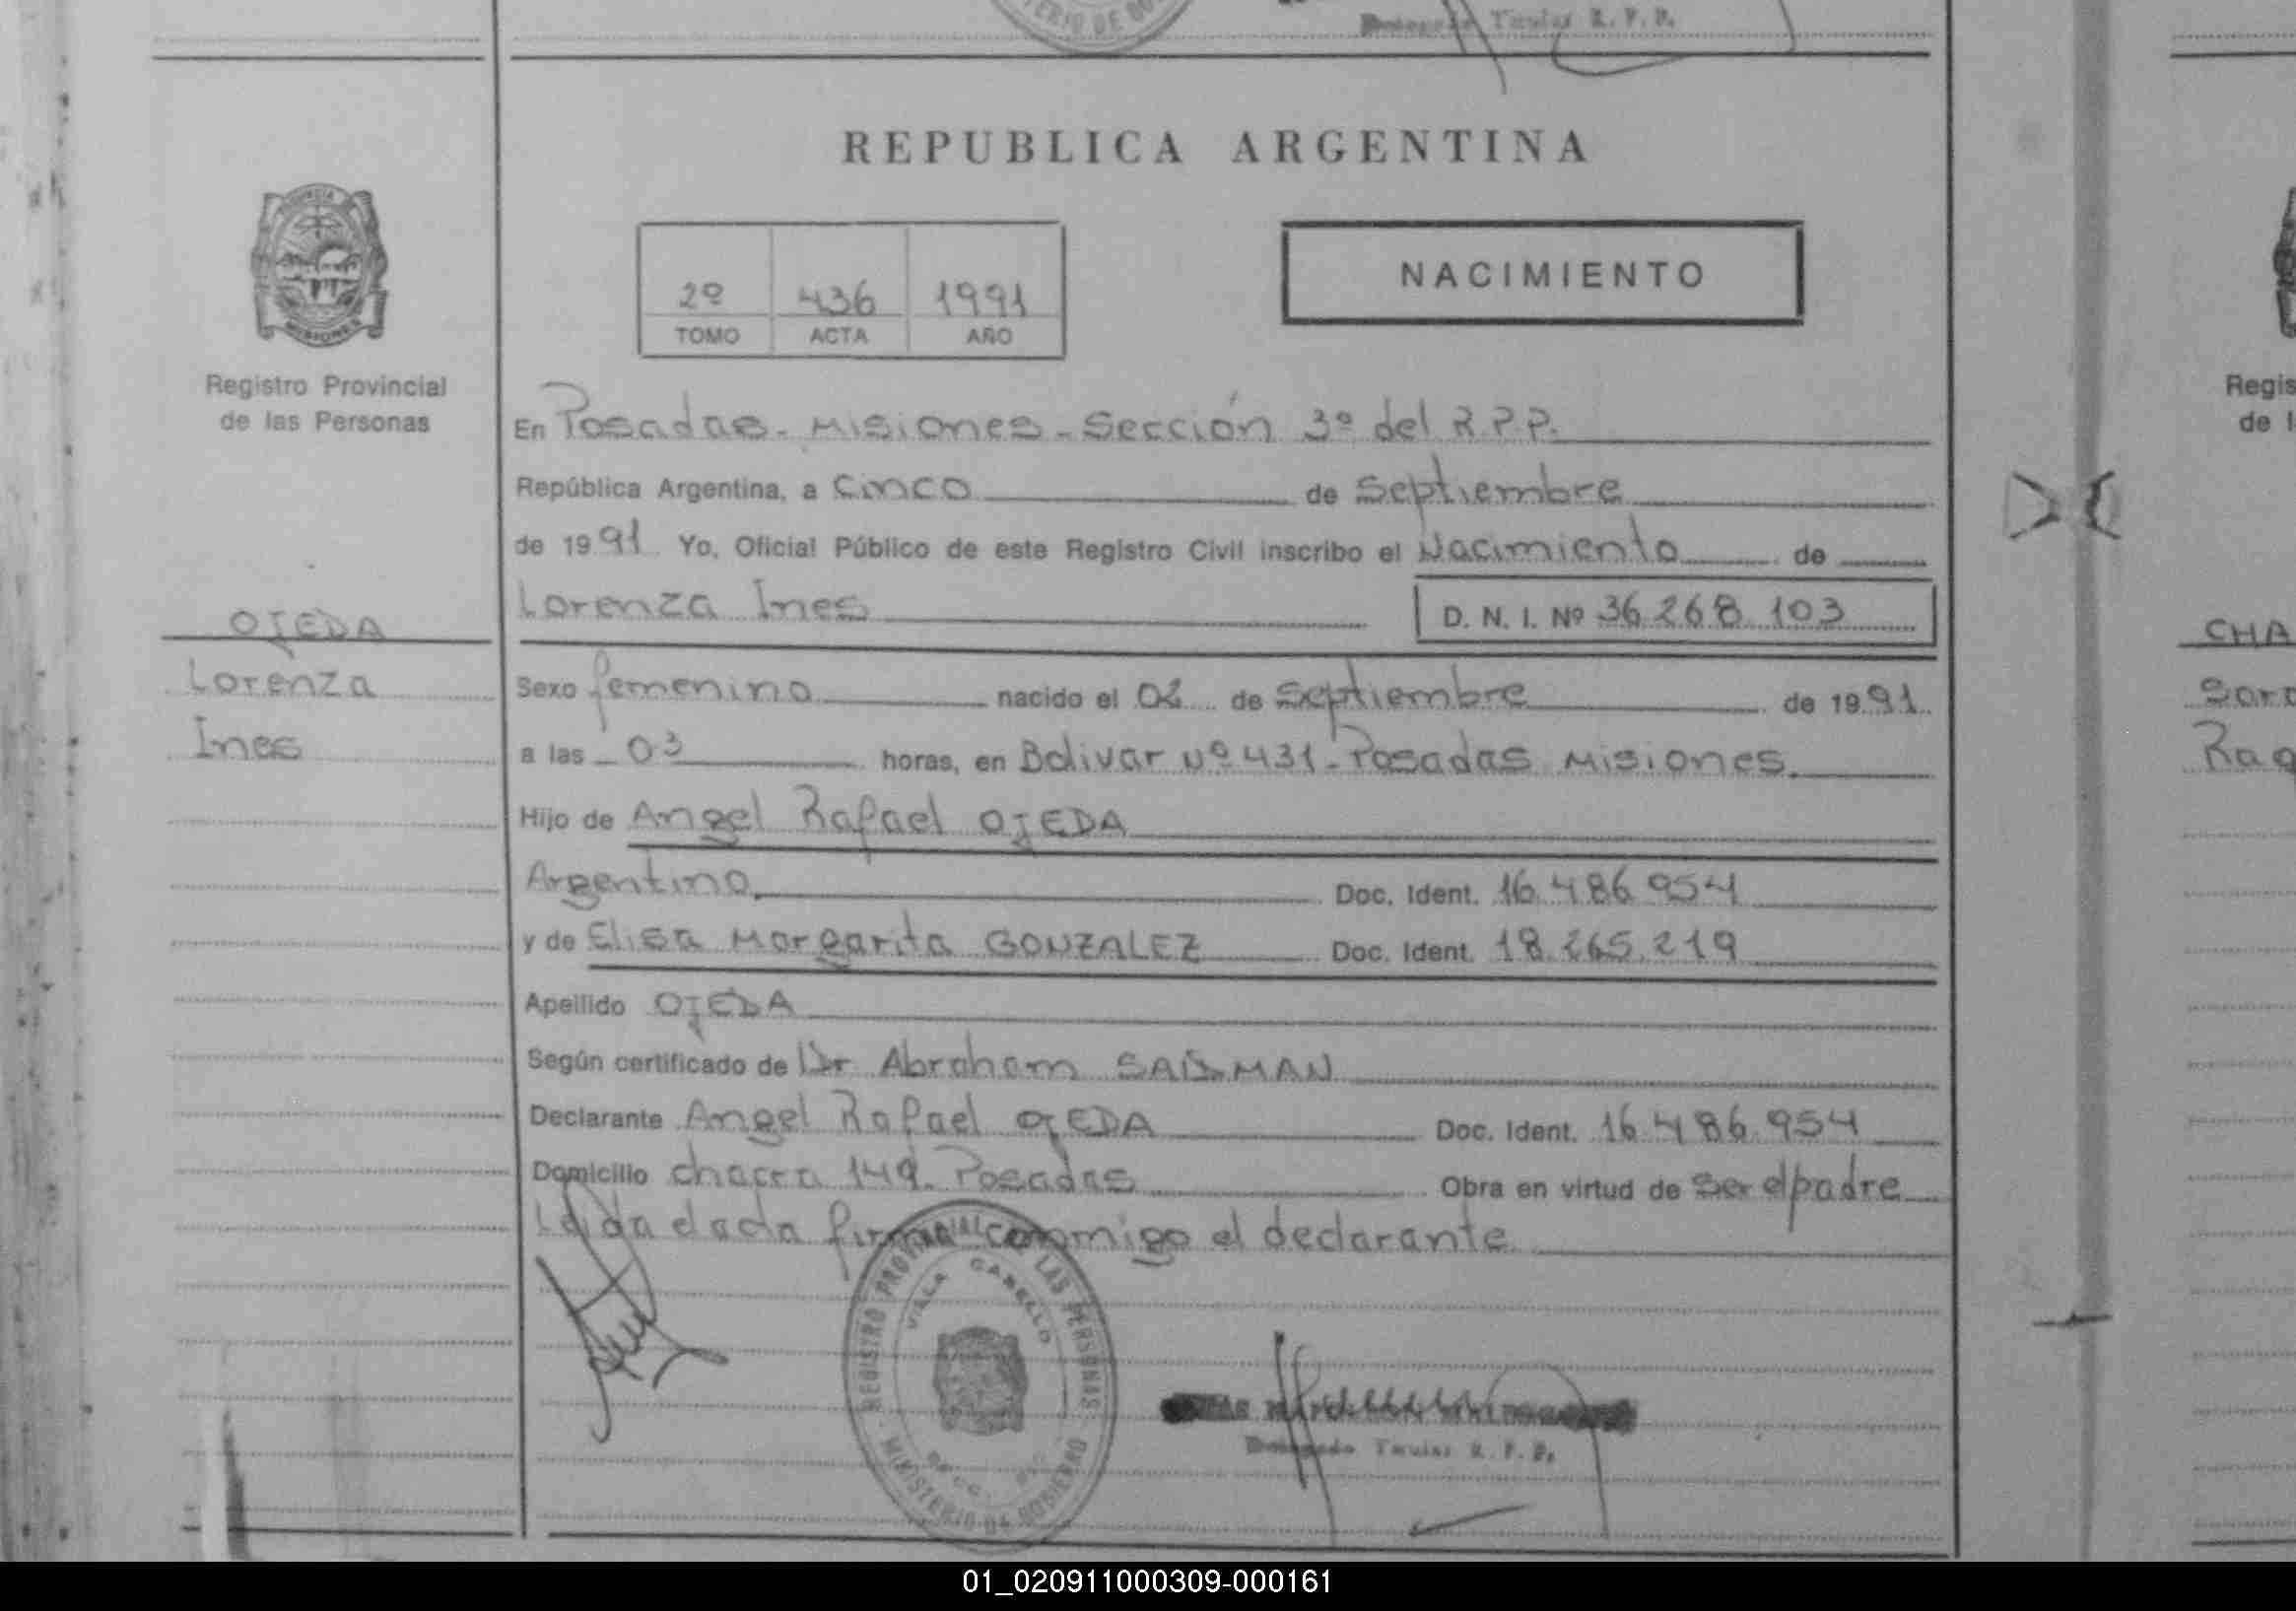 TERIO DE GO
Delegado Titular R. P. P.
REPUBLICA ARGENTINA
PROVINCIA
MISIONES
Registro Provincial
de las Personas
2º 436 1991
TOMO ACTA AÑO
NACIMIENTO
En Posadas - Misiones - Sección 3º del R.P.P.
República Argentina, a Cinco de Septiembre
de 1991 Yo, Oficial Público de este Registro Civil inscribo el Nacimiento de
Lorenza Ines
D. N. I. Nº 36.268.103
OJEDA
Lorenza
Ines
Sexo femenino nacido el 02 de Septiembre de 1991
a las 03 horas, en Bolivar Nº 431 - Posadas Misiones.
Hijo de Angel Rafael OJEDA
Argentino. Doc. Ident. 16.486.954
y de Elisa Margarita GONZALEZ Doc. Ident. 18.265.219
Apellido OJEDA
Según certificado de Dr Abraham
Declarante Angel Rafael OJEDA Doc. Ident. 16.486.954
Domicilio chacra 149. Posadas Obra en virtud de Ser el padre
Leida dada firma conmigo el declarante
REGISTRO PROVINCIAL LAS PERSONAS
VILLA CABELLO
MINISTERIO DE GOBIERNO
Delegado Titular R. P. P.
Regis
de l
CHA
Sar
Raq
01_020911000309-000161